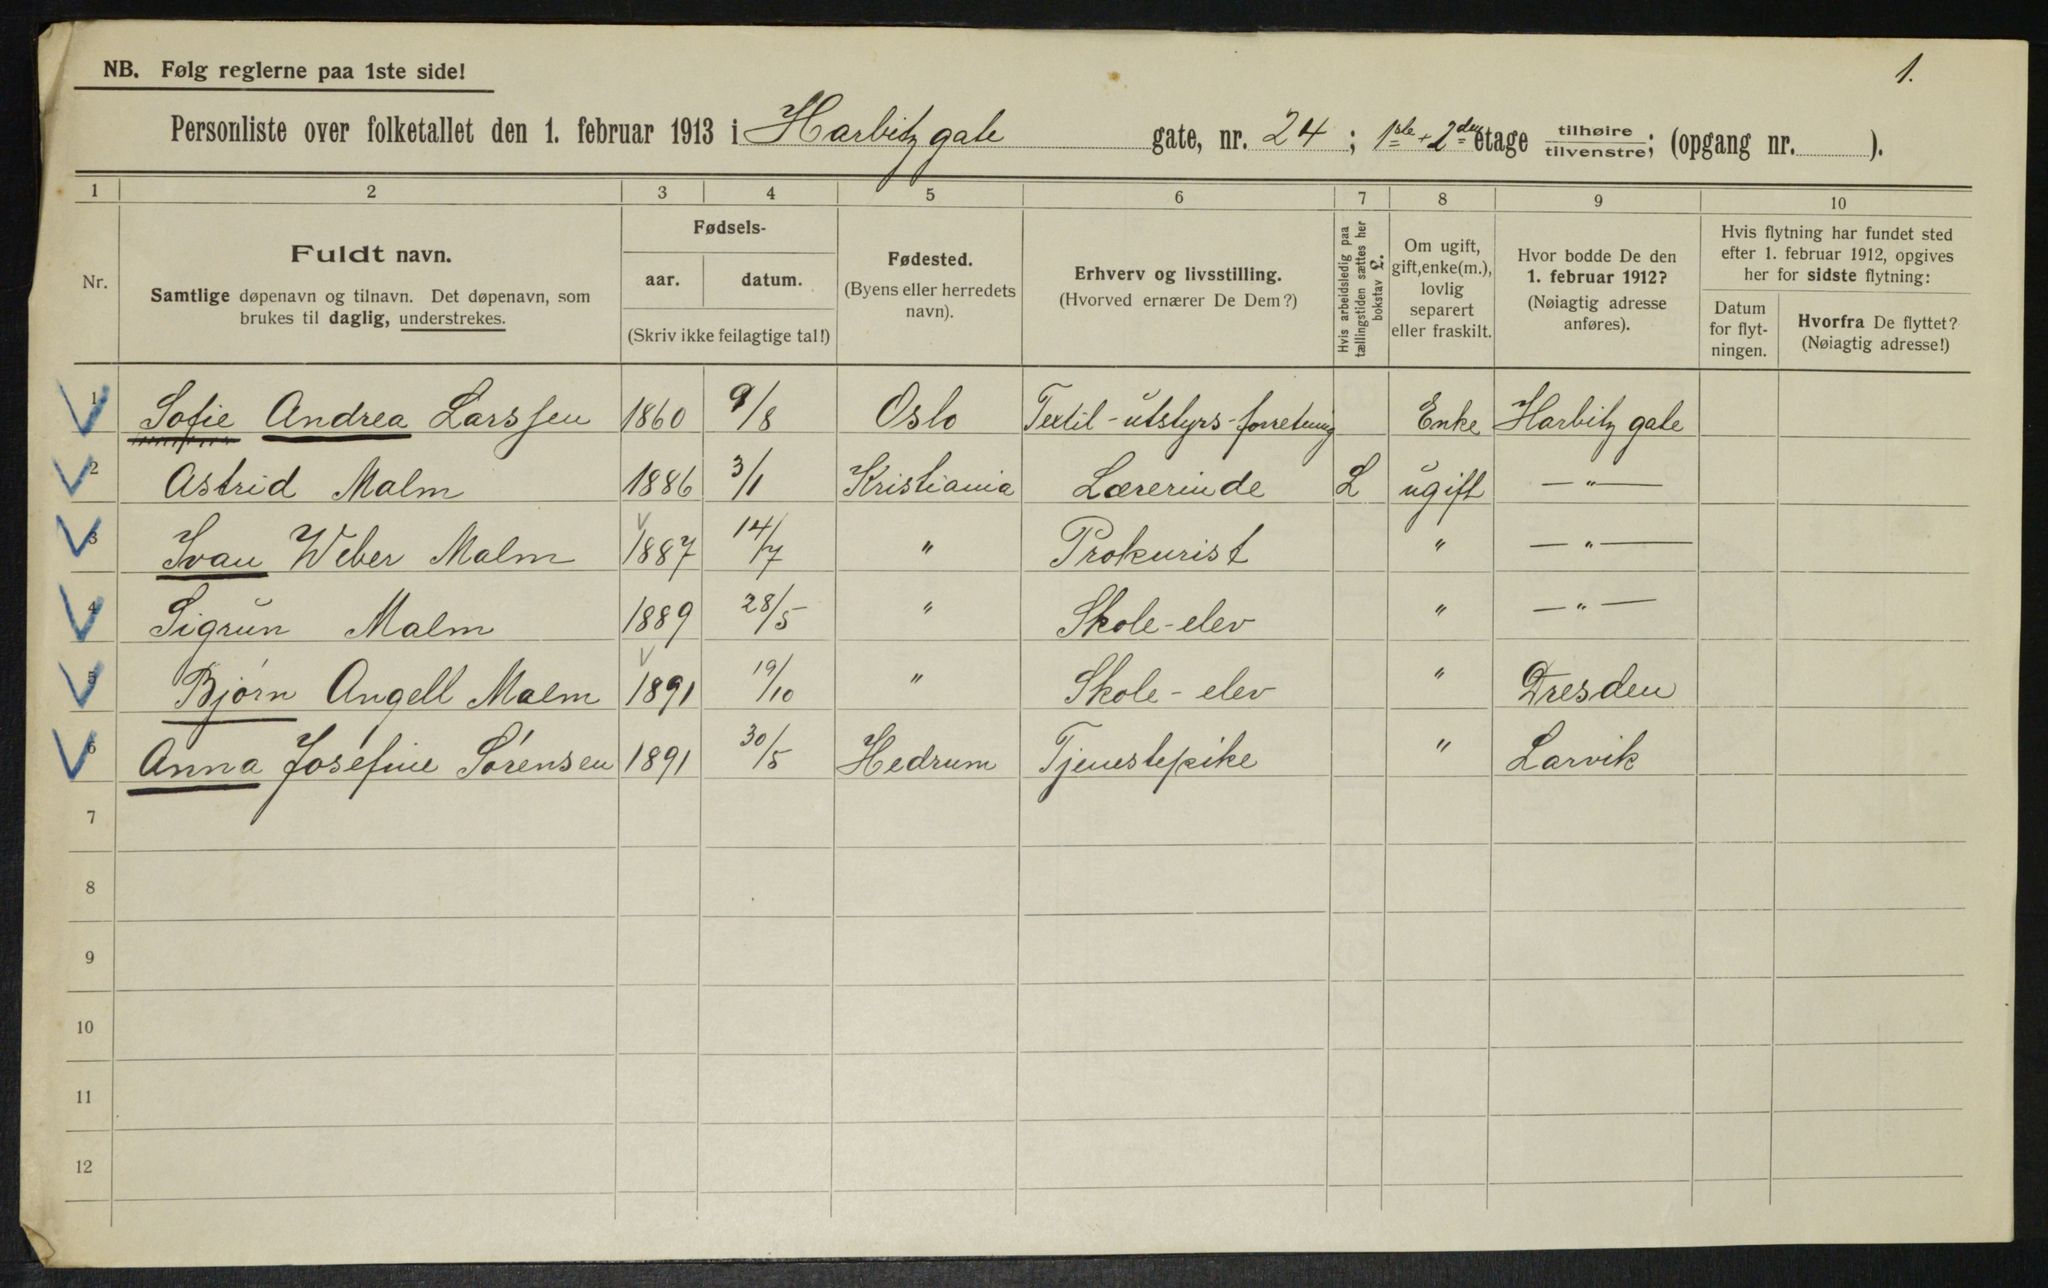 1.
NB. Følg reglerne paa 1ste side!
Personliste over folketallet den 1. februar 1913 i Harbitz gate gate, nr. 24 ; 1ste + 2den etage tilhøire tilvenstre; (opgang nr. ).
1 2 3 4 5 6 7 8 9 10
Nr.
Fuldt navn.
Samtlige døpenavn og tilnavn. Det døpenavn, som
brukes til daglig, understrekes.
Fødsels-
aar. datum.
(Skriv ikke feilagtige tal!)
Fødested.
(Byens eller herredets
navn).
Erhverv og livsstilling.
(Hvorved ernærer De Dem?)
Hvis arbeidsledig paa
tællingstiden sættes her
bokstav L.
Om ugift,
gift, enke(m.),
lovlig
separert
eller fraskilt.
Hvor bodde De den
1. februar 1912?
(Nøiagtig adresse
anføres).
Hvis flytning har fundet sted
efter 1. februar 1912, opgives
her for sidste flytning:
Datum
for flyt-
ningen.
Hvorfra De flyttet?
(Nøiagtig adresse!)
1 Sofie Andrea Larssen 1860 9/8 Oslo Textil-utstyrs-forretning Enke Harbitz gate
2 Astrid Malm 1886 3/1 Kristiania Lærerinde L ugift — " —
3 Ivan Weber Malm 1887 14/7 " Prokurist " — " —
4 Sigrun Malm 1889 28/5 " Skole-elev " — " —
5 Bjórn Angell Malm 1891 19/10 " Skole-elev " Dresden
6 Anna Josefine Sórensen 1891 30/5 Hedrum Tjenestepike " Larvik
7
8
9
10
11
12